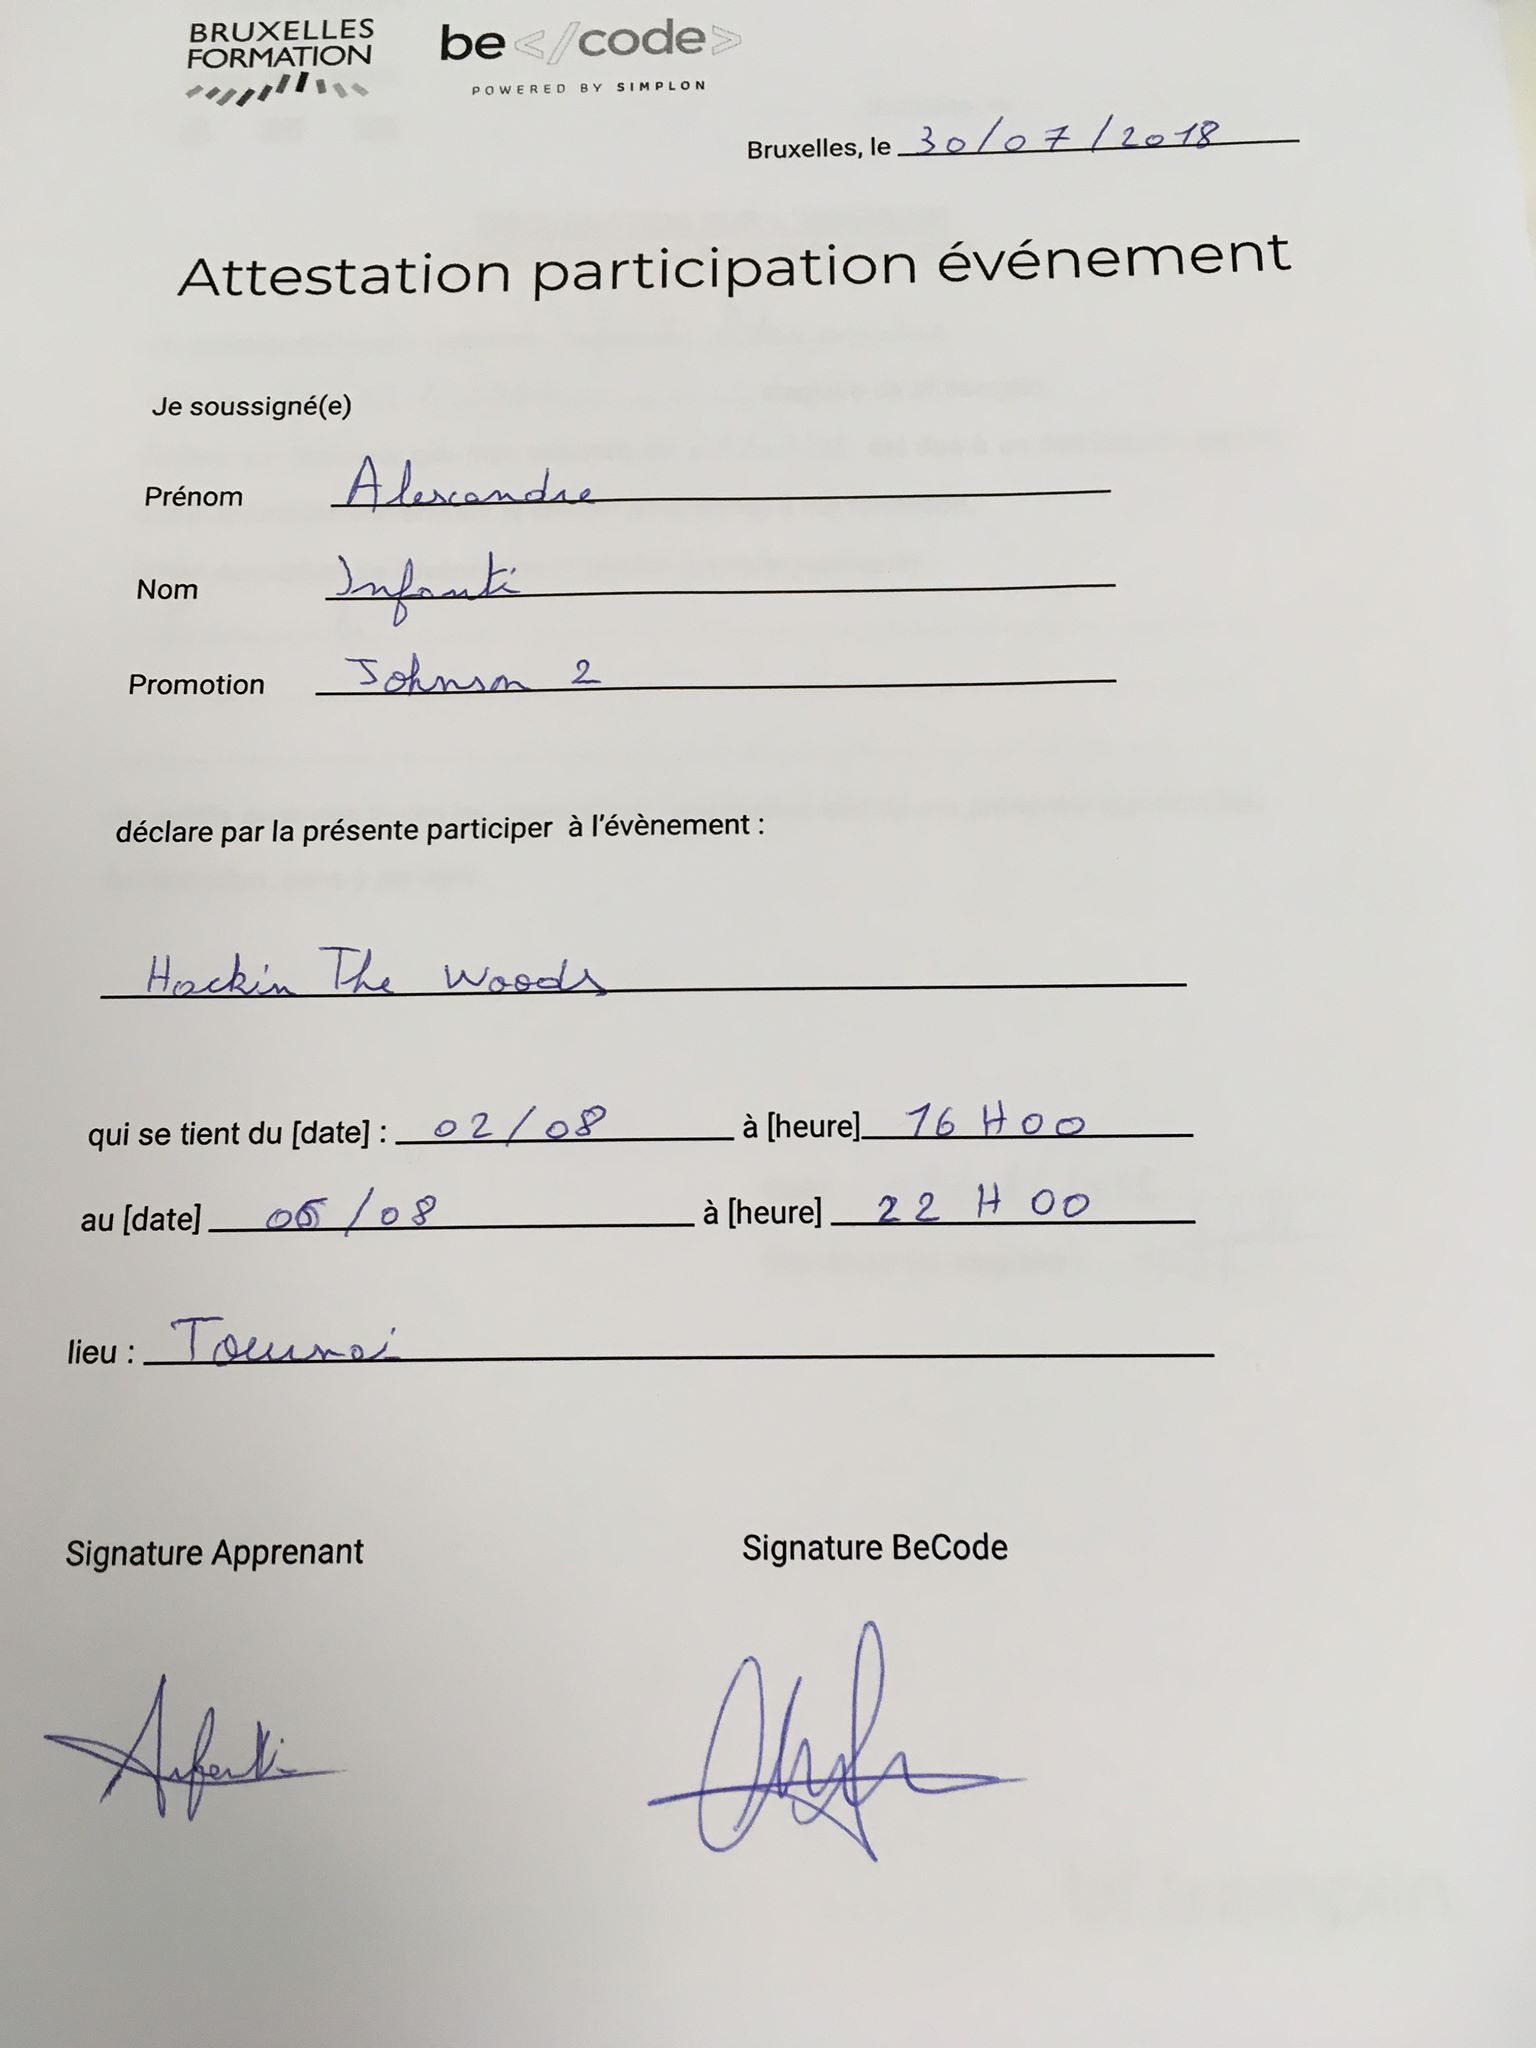 BRUXELLES
FORMATION
be </code>
POWERED BY SIMPLON
Bruxelles, le 30/07/2018
Attestation participation événement
Je soussigné(e)
Prénom Alexandre
Nom Infanti
Promotion Johnson 2
déclare par la présente participer à l'évènement :
Hackin The Woods
qui se tient du [date] : 02/08 à [heure] 16 H 00
au [date] 05/08 à [heure] 22 H 00
lieu : Tournai
Signature Apprenant Signature BeCode